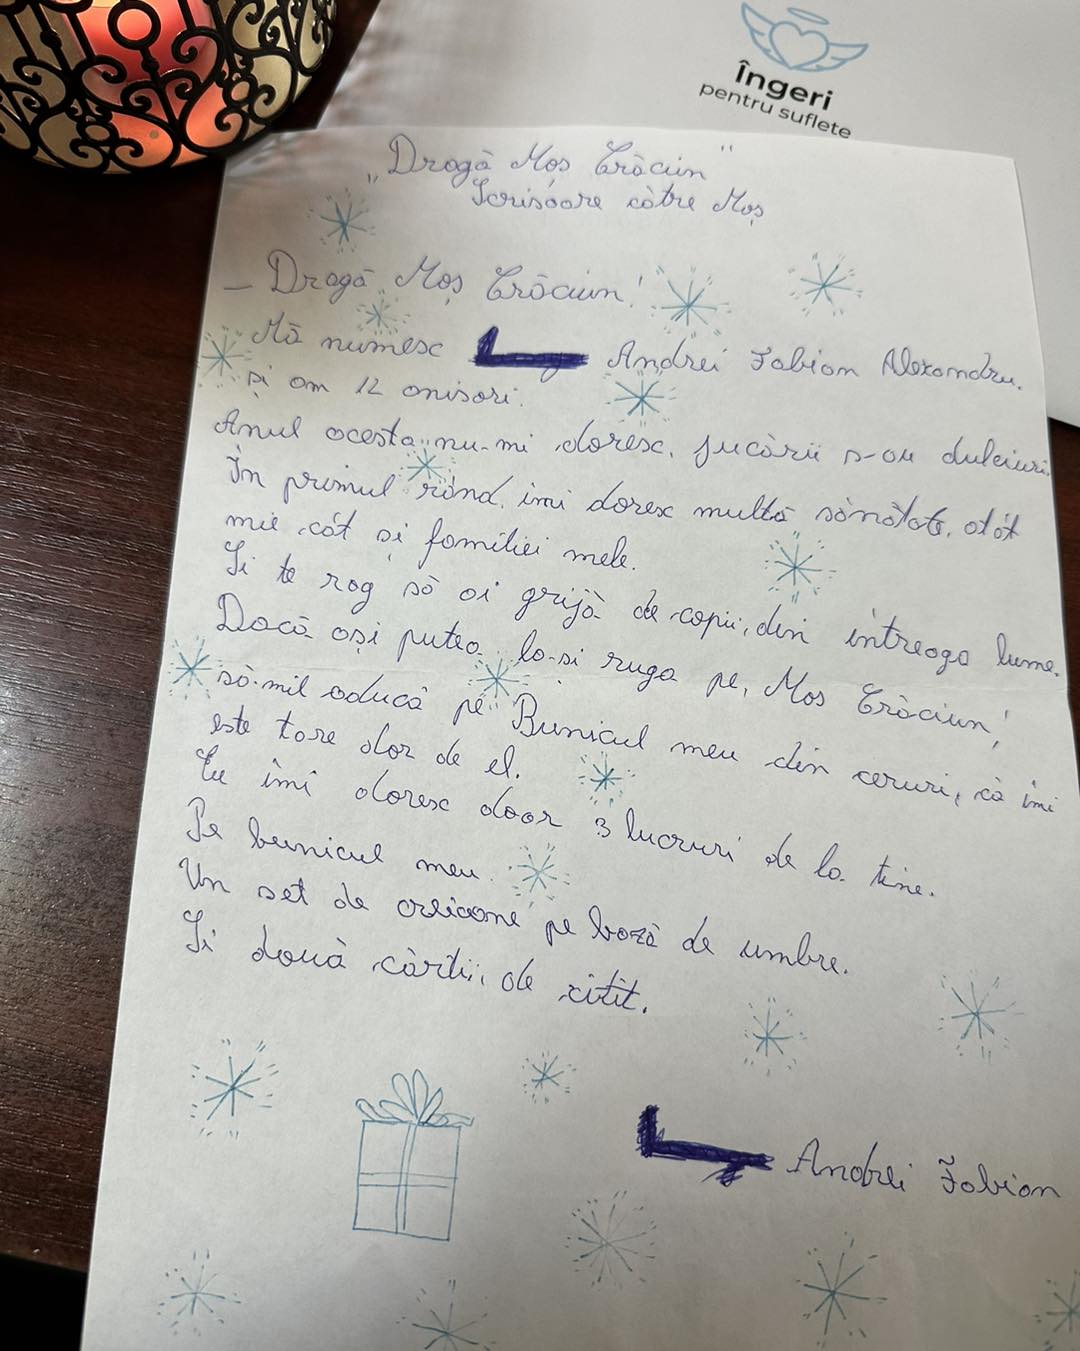 îngeri
pentru suflete
„Dragă Moș Crăciun”
Scrisoare către Moș
– Dragă Moș Crăciun!
Mă numesc Andrei Fabian Alexandru.
și am 12 anisori.
Anul acesta nu-mi doresc, jucării s-au dulciuri.
În primul rând, imi doresc multă sănătate, atât
mie cât și familiei mele.
Și te rog să ai grijă de copii, din intreaga lume.
Dacă ași putea l-ași ruga pe, Moș Crăciun!
să-mil aducă pe Bunicul meu din ceruri, că îmi
este tare dor de el.
Eu îmi doresc doar 3 lucruri de la tine.
Pe bunicul meu.
Un set de creioane pe bază de umbre.
Și două cărtii, de citit.
Andrei Fabian